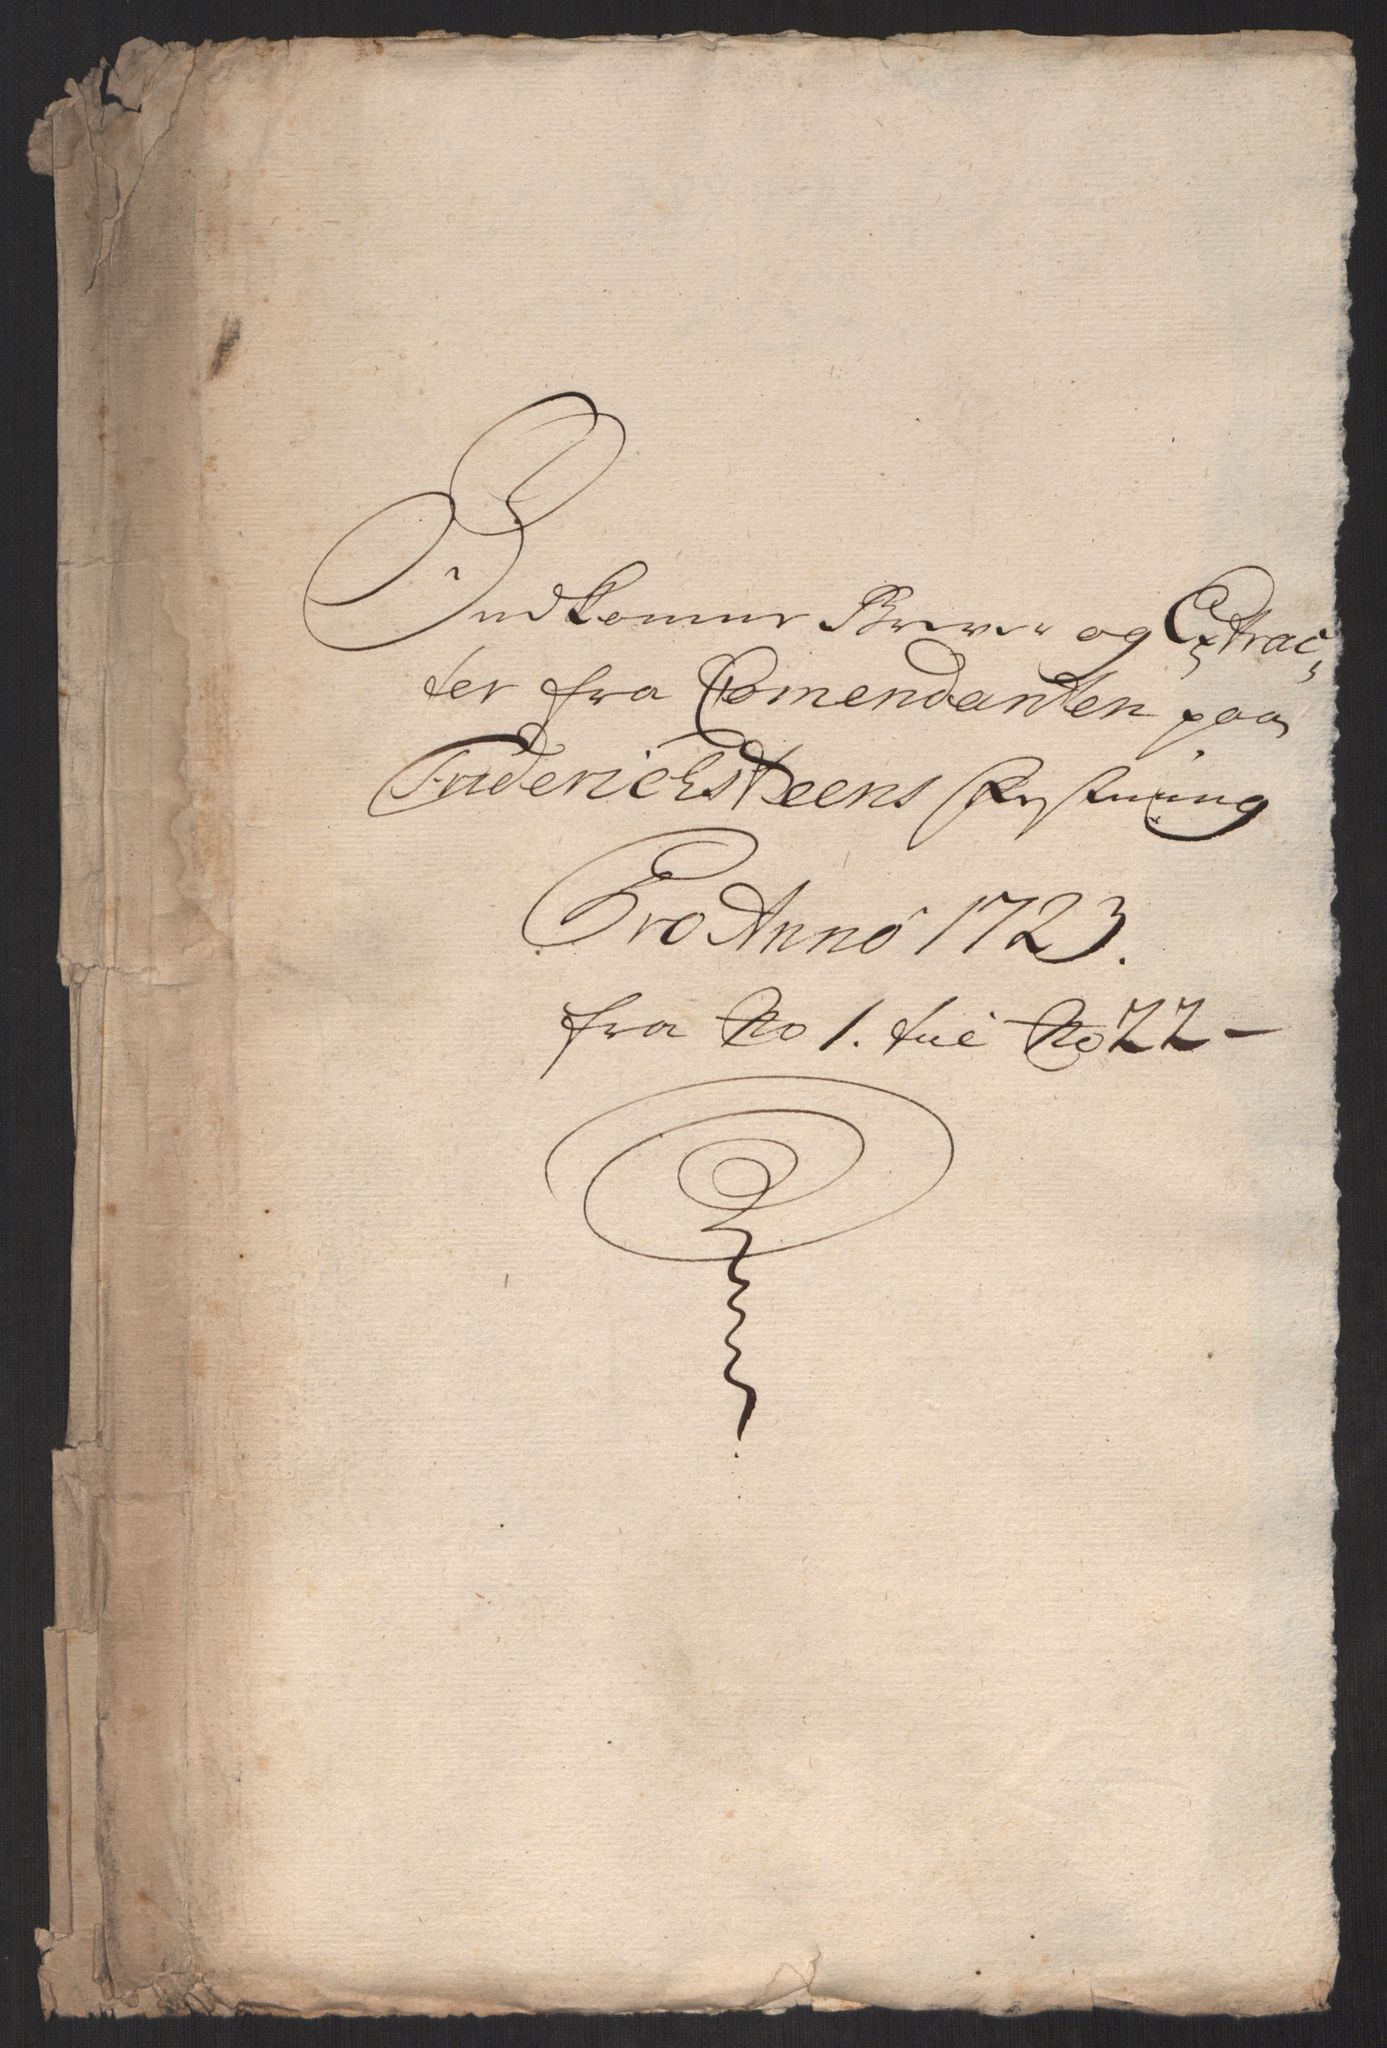 Indkomne Brever og Extrac-
ter fra Comendanten paa
Friderichsteens Fæstning
Pro Anno 1723.
fra No 1. til No 22 -